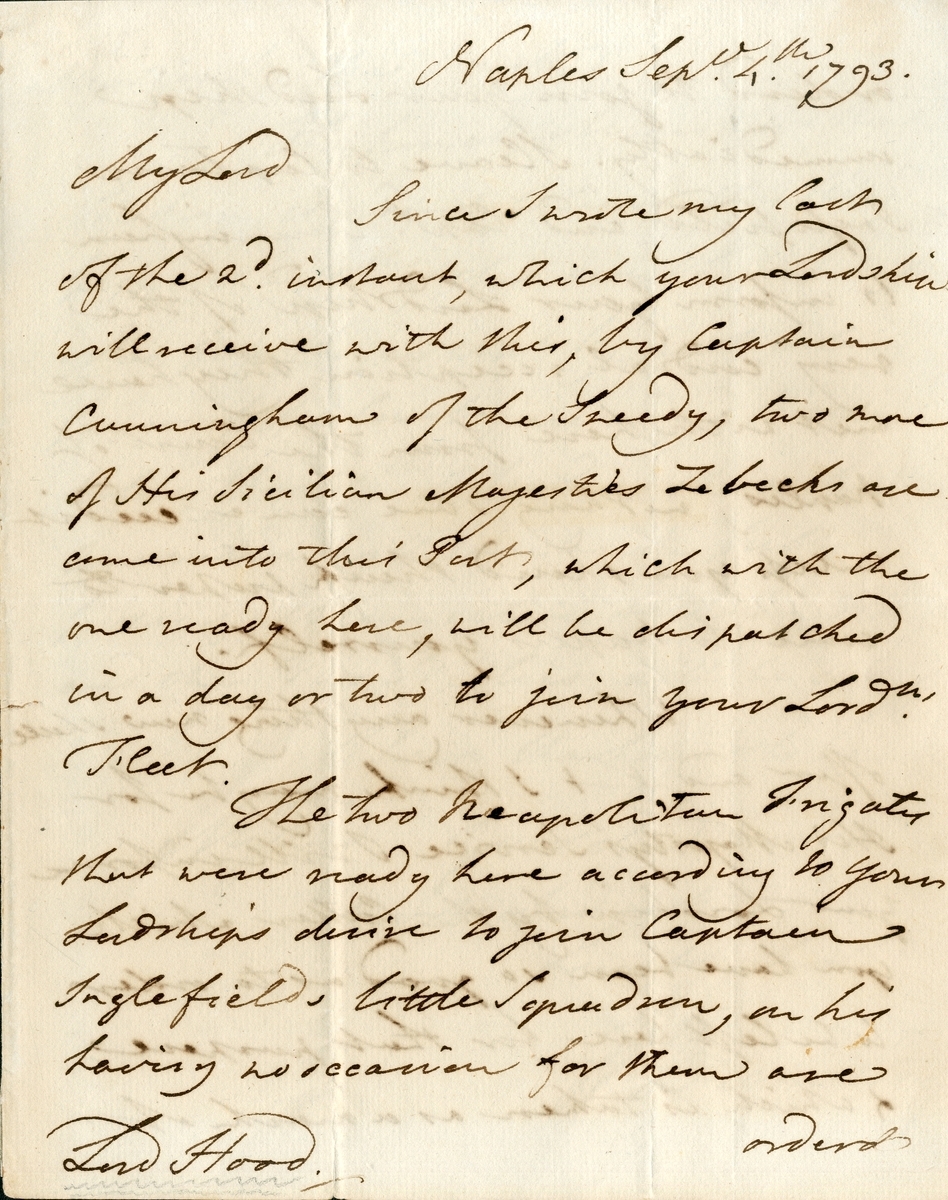 Naples Sepr. 4.th 1793.
My Lord
Since I wrote my last
of the 2d. instant, which your Lordship
will receive with this, by Captain
Cunningham of the Speedy, two more
of His Sicilian Majesties Zebecks are
come into this Port, which with the
one ready here, will be dispatched
in a day or two to join your Lordp's
Fleet.
The two Neapolitan Frigates
that were ready here according to your
Lordships desire to join Captain
Inglefields little Squadron, on his
having no occasion for them are
orderd
Lord Hood.